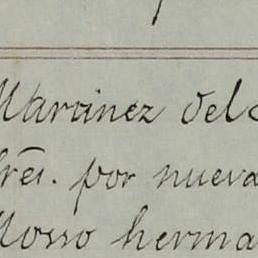 Martinez del
frés. por nueva
Mosso herma